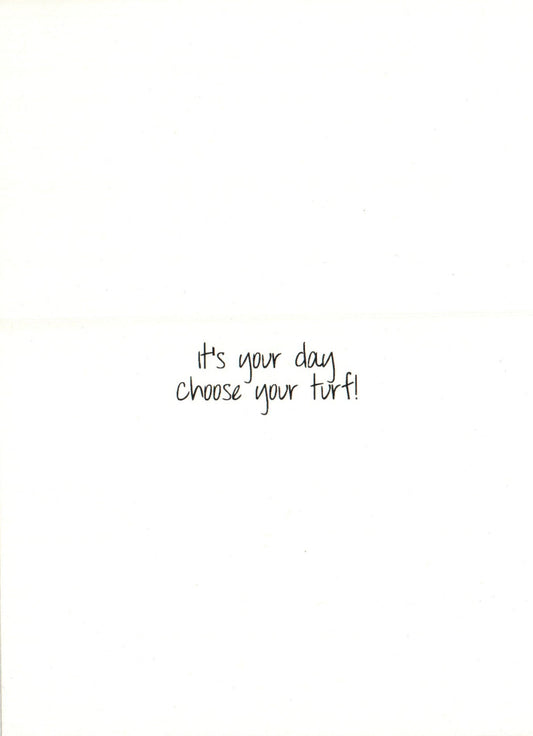 it's your day
choose your turf!